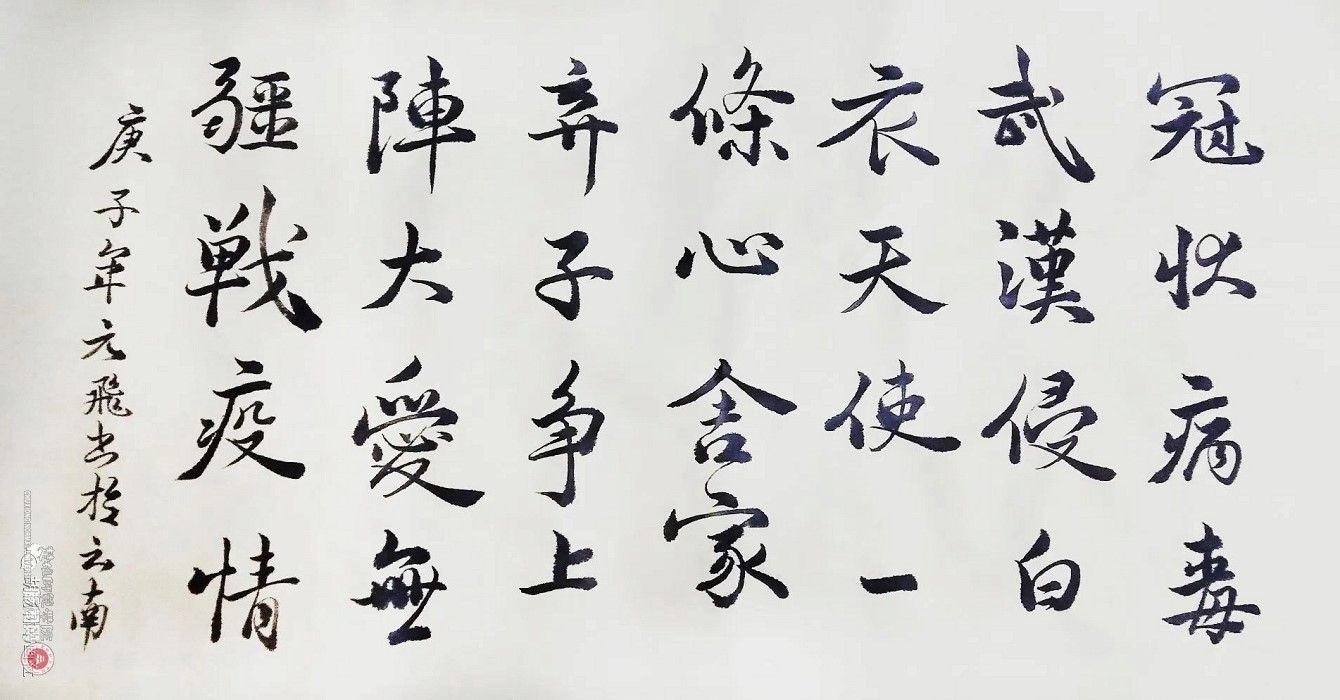 冠状病毒
武漢侵白
衣天使一
條心舍家
弃子争上
陣大愛無
疆戦疫情
庚子年元飛书於云南